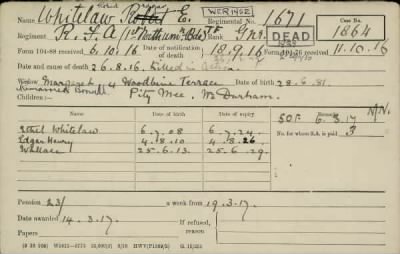 Name Whitelaw Robert E. WER/1462 Regimental No. 1671 Case No.
Regiment R.F.A (1st Northum'n Bde) Rank Gnr. DEAD 1864
Form 104-88 received 6.10.16 Date of notification of death 18.9.16 Form 104-76 received 11.10.16
Date and cause of death 26.8.16. Killed in Action
Widow Margaret 4 Woodbine Terrace Date of birth 28.6.81.
Remarried Pity Mee, Co Durham.
Children:—
Date of birth Date of expiry Remarks
SOF 6.3.17 N/N
Ethel Whitelaw 6.7.08 6.7.24. No. for whom S.A. is paid 3
Edgar Henry 4.8.10 4.8.26
Wallace 25.6.13. 25.6.29.
Pension 23/ a week from 19.3.17.
Date awarded 14.3.17. If refused, reason
Papers